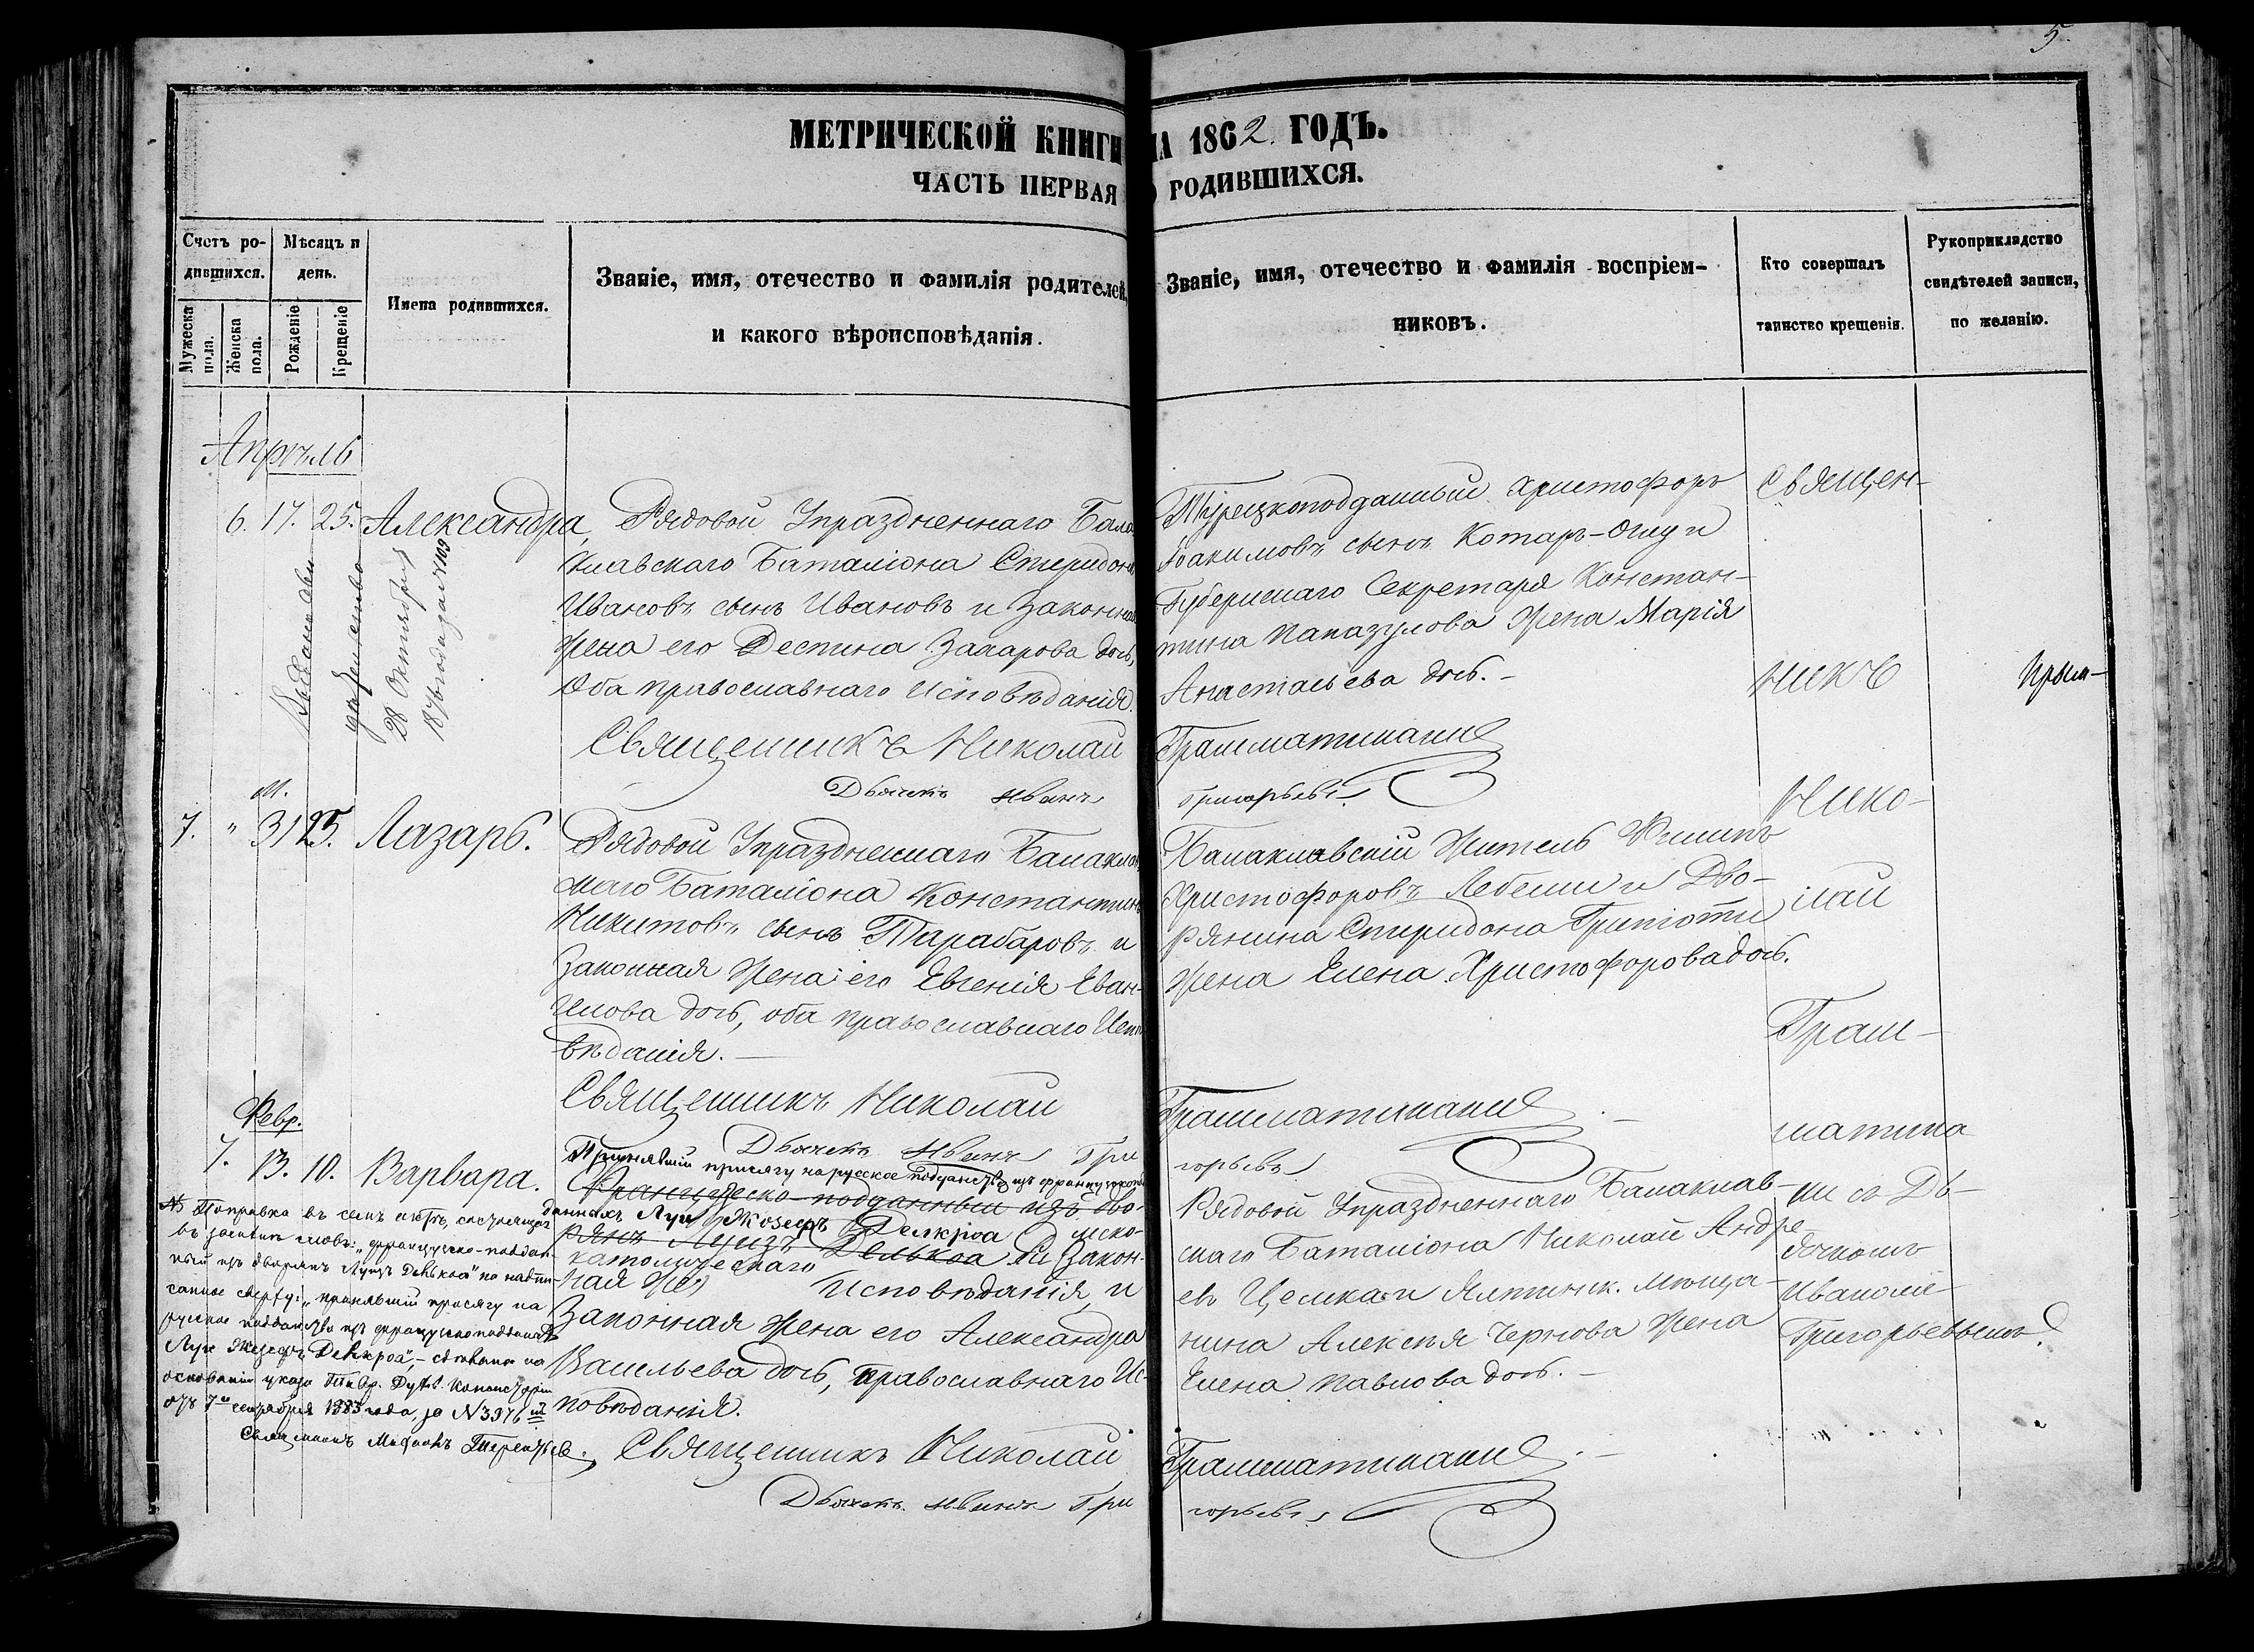 5.
МЕТРИЧЕСКОЙ КНИГИ НА 1862 ГОДЪ.
ЧАСТЬ ПЕРВАЯ О РОДИВШИХСЯ.
Счетъ родившихся.
Мужеска пола.
Женска пола.
Мѣсяцъ и день.
Рожденіе
Крещеніе
Имена родившихся.
Званіе, имя, отечество и фамилія родителей,
и какого вѣроисповѣданія.
Званіе, имя, отечество и фамилія воспріем-
никовъ.
Кто совершалъ
таинство крещенія.
Рукоприкладство
свидѣтелей записи,
по желанію.
Апрѣль
6. 17. 25. Александра,
28 Октября
Рядовой Упраздненнаго Бала
клавскаго Баталіона Спиридонъ
Ивановъ сынъ Ивановъ и законная
жена его Деспина Захарова дочь,
Оба православнаго исповѣданія.
Священникъ Николай
Дьячекъ Иванъ
Турецкоподданный Христофоръ
Іоакимовъ сынъ Котаръ-Оглу и
Губернскаго Секретаря Констан-
тина Папазулова жена Марія
Анастасьева дочь. -
Грамматикати
Григорьевъ
М.
7. " 31 25. Лазарь.
Рядовой Упраздненнаго Балаклав
скаго Баталіона Константинъ
Никитовъ сынъ Тарабаровъ и
Законная жена его Евгенія Еван-
Оба православнаго Испо
вѣданія. —
Священникъ Николай
Дьячекъ Иванъ Гри
Балаклавскій житель Филипъ
Христофоровъ Лебеши и Дво-
рянина Спиридона Грипіоти
жена Елена Христофорова дочь.
Грамматикати
горьевъ
Февр.
7. 13. 10. Варвара.
Принявшій присягу на русское подданство изъ французскопод
Французско-подданный изъ дво-
данныхъ Луи Жозефъ Делкроа
рянъ Луизъ Делькоа
католическаго
ная же
Исповѣданія, и
Законная жена его Александра
Васильева дочь, православнаго Ис-
повѣданія.
Священникъ Николай
Дьячекъ Иванъ Гри
Рядовой Упраздненнаго Балаклав-
скаго Баталіона Николай Андре-
евъ Целика и Ялтинск. мѣща-
нина Алексѣя Чернова жена
Елена Павлова дочь. -
Грамматикати
горьевъ
Священ-
никъ
Нико-
лай
Грам-
матика
ти съ Дь-
ячкомъ
Иваномъ
Григорьевымъ
№ Поправка въ семъ актѣ, состоящая
въ замѣнѣ словъ: „французско-поддан-
ный изъ дворянъ Луизъ Делькоа" на надпи-
санное сверху: „принявшій присягу на
русское подданство изъ французскоподданныхъ
Луи Жозефъ Делькроа", — сдѣлана на
основаніи указа Тавр. Дух. Консисторіи
отъ 7го сентября 1883 года, за № 3976
Священникъ Терентьев.